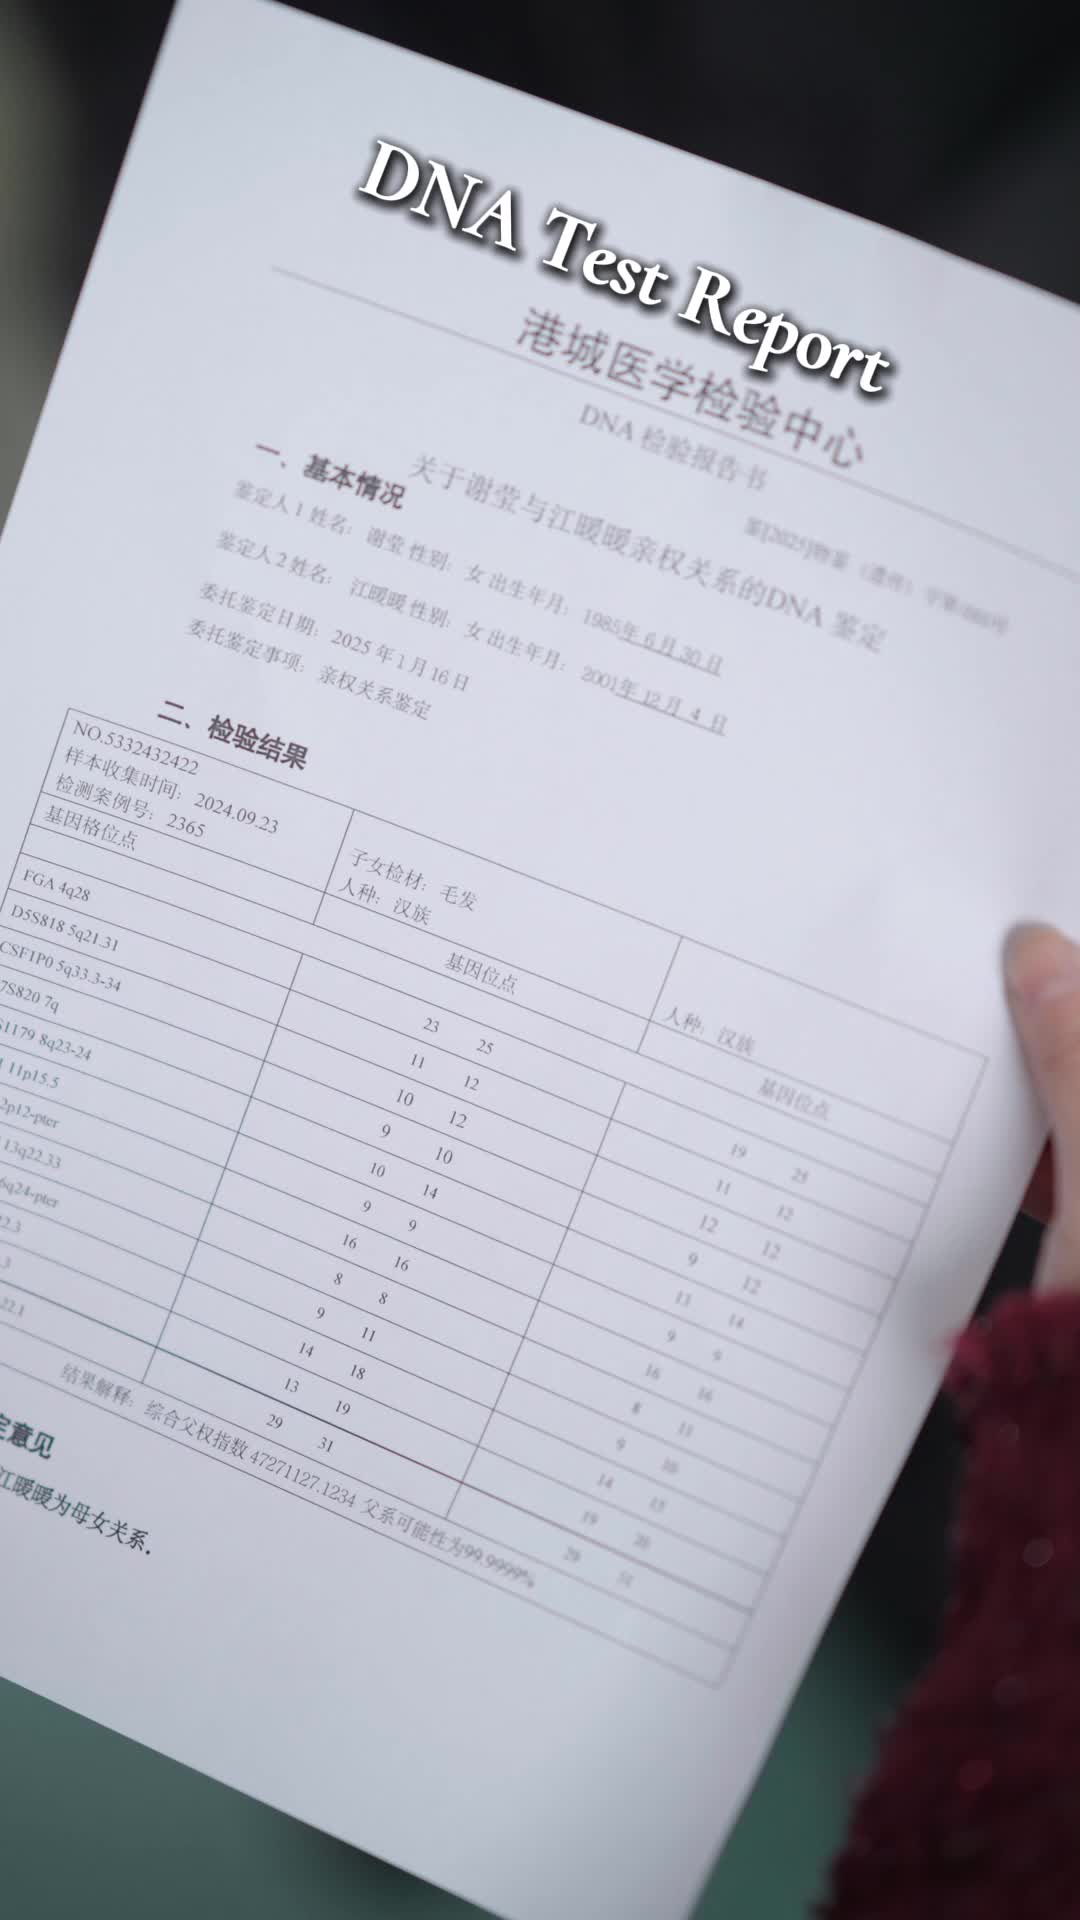 DNA Test Report
港城医学检验中心
DNA 检验报告书
关于谢莹与江暖暖亲权关系的DNA 鉴定
一、基本情况
鉴定人1 姓名：谢莹 性别：女 出生年月：1985年 6月 30 日
鉴定人2 姓名：江暖暖 性别：女 出生年月：2001年 12月 4 日
委托鉴定日期：2025 年 1 月 16 日
委托鉴定事项：亲权关系鉴定
二、检验结果
NO.5332432422
样本收集时间：2024.09.23
检测案例号：2365
子女检材：毛发
人种：汉族
人种：汉族
基因格位点 基因位点 基因位点
FGA 4q28 23 25 19 25
D5S818 5q21.31 11 12 11 12
CSF1P0 5q33.3-34 10 12 12 12
7S820 7q 9 10 9 12
1179 8q23-24 10 14 13 14
11p15.5 9 9 9 9
2p12-pter 16 16 16 16
13q22.33 8 8 8 11
6q24-pter 9 11 9
22.3 14 18 14
.3 13 19 19
22.1 29 31 29 31
结果解释：综合父权指数 47271127.1234 父系可能性为99.9999%
定意见
江暖暖为母女关系.